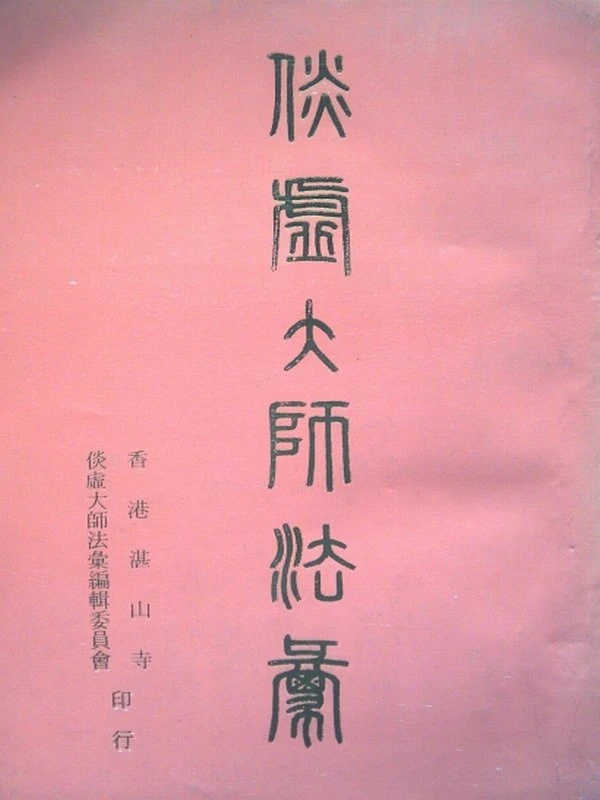 倓虛大師法彙
香港湛山寺
倓虛大師法彙編輯委員會
印行